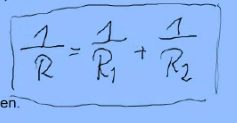 1/R = 1/R₁ + 1/R₂
en.